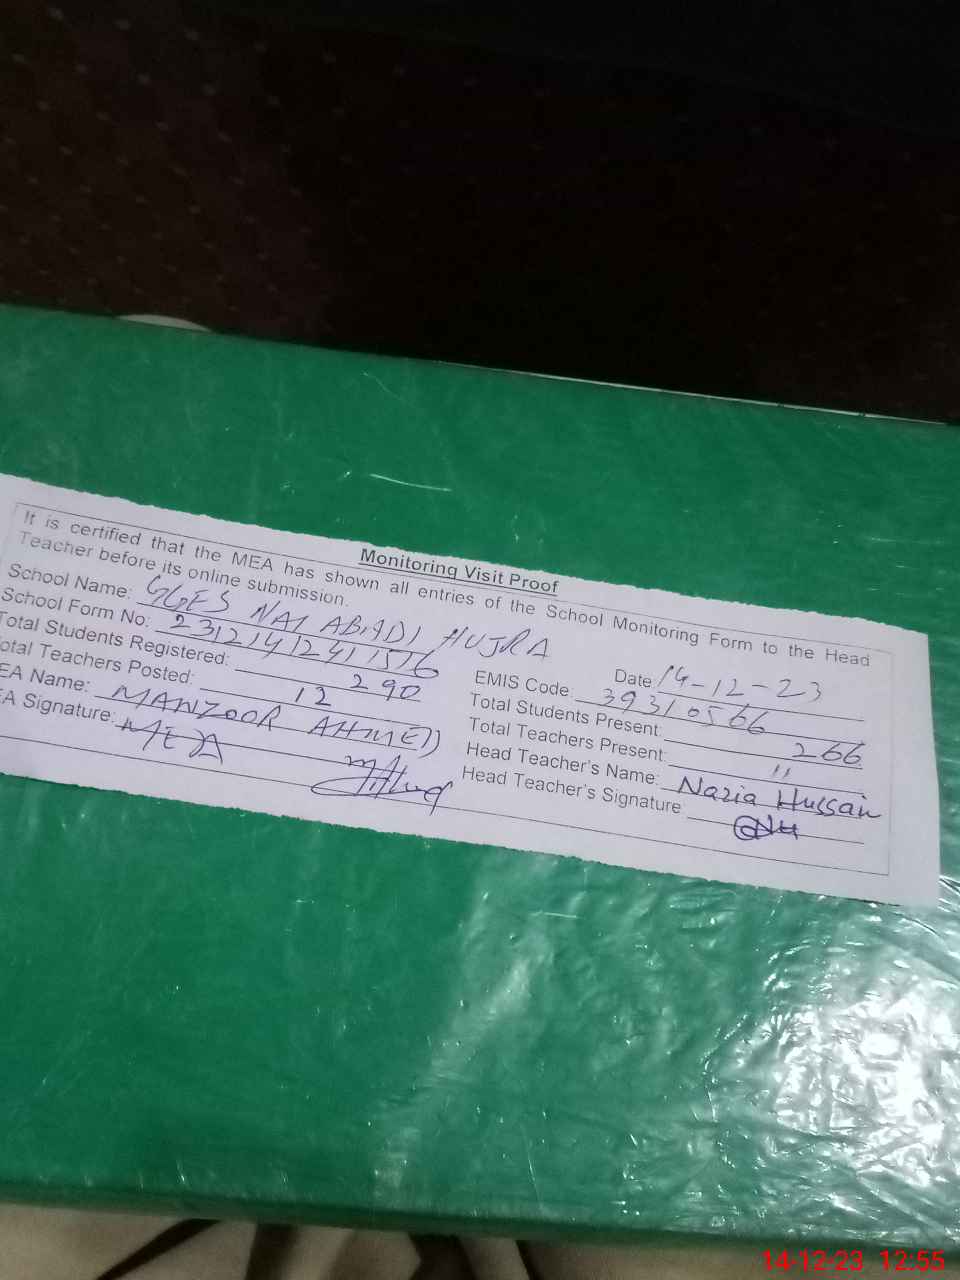 Monitoring Visit Proof
It is certified that the MEA has shown all entries of the School Monitoring Form to the Head
Teacher before its online submission.
School Name: GGES NAI ABADI HUJRA
Date 14-12-23
School Form No: 23121412411516
EMIS Code: 39310566
Total Students Registered: 290
Total Students Present: 266
otal Teachers Posted: 12
Total Teachers Present: 11
EA Name: MANZOOR AHMED
Head Teacher's Name: Nazia Hussain
EA Signature: MEA
Head Teacher's Signature:
14-12-23 12:55